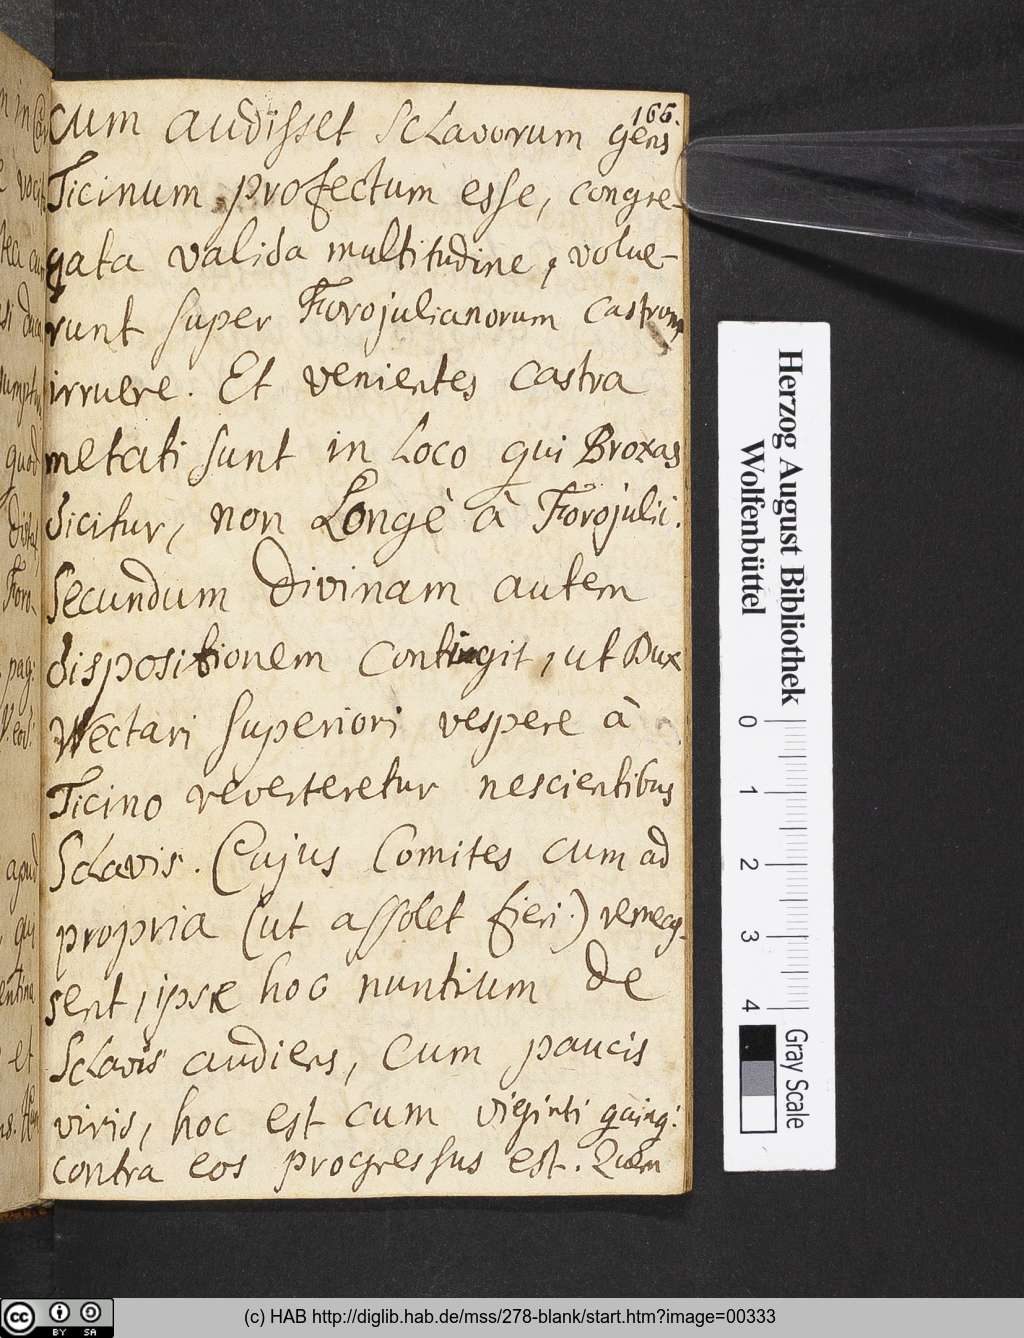 166.
cum audisset Sclavorum gens
Ticinum profectum esse, congre-
gata valida multitudine, volue-
runt super Forojulianorum castrum
irruere. Et venientes castra
metati sunt in Loco qui Broxas
dicitur, non Longè à Forojulii.
Secundum Divinam autem
dispositionem contingit, ut Dux
Wectari superiori vespere à
Ticino reverteretur nescientibus
Sclavis. Cujus Comites cum ad
propria (ut assolet fieri) remeas-
sent, ipse hoc nuntium de
Sclavis audiens, cum paucis
viris, hoc est cum viginti quinq:
contra eos progressus est. Quem
Herzog August Bibliothek
Wolfenbüttel
0 1 2 3 4
Gray Scale
cc BY SA
(c) HAB http://diglib.hab.de/mss/278-blank/start.htm?image=00333